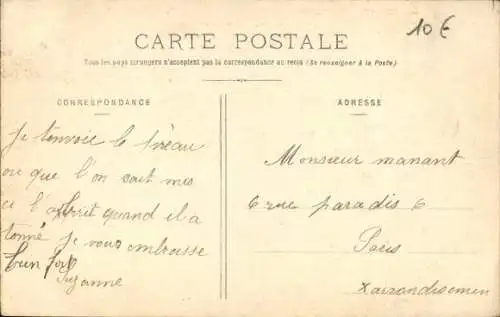 10€
CARTE POSTALE
Tous les pays étrangers n'acceptent pas la correspondance au recto (Se renseigner à la Poste)
CORRESPONDANCE
ADRESSE
Je t'envoie le préau
ou que l'on sait mis
a l'abrit quand il a
tonné je vous embrasse
bien fort
Suzanne
Monsieur manant
6 rue paradis 6
Paris
X arrondisemen